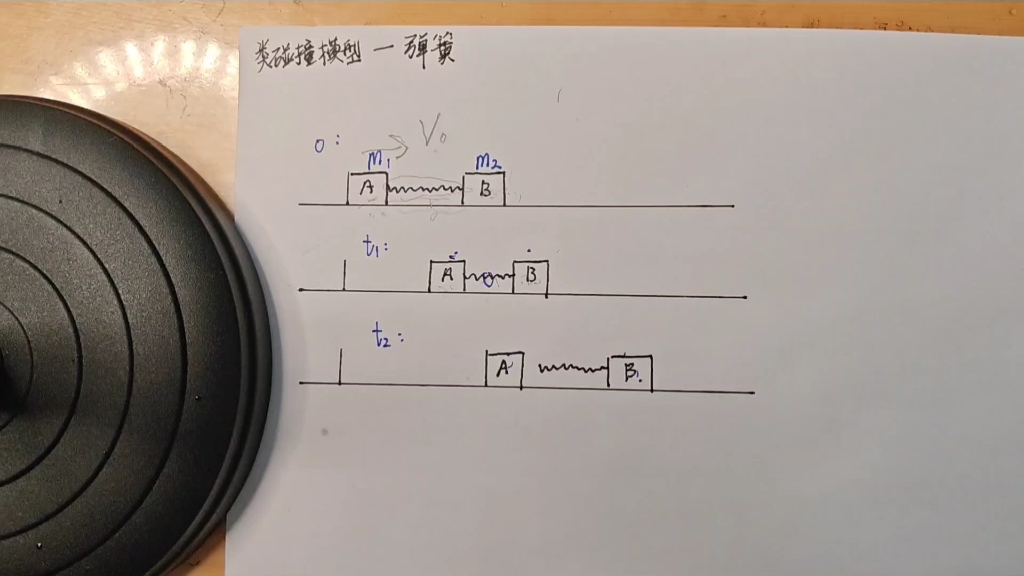 类碰撞模型一弹簧
V₀
0:
m₁ m₂
A B
t₁:
A B
t₂:
A B